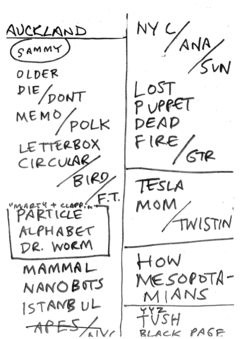 AUCKLAND
SAMMY
OLDER
DIE/DONT
MEMO/POLK
LETTERBOX
CIRCULAR/BIRD/F.T.
PARTICLE
ALPHABET
DR. WORM
MAMMAL
NANOBOTS
ISTANBUL
APES/
NYC/ANA/SUN
LOST
PUPPET
DEAD
FIRE/GTR
TESLA
MOM/TWISTIN
HOW
MESOPOTA-
MIANS
XYZ
TVSH
BLACK PAGE